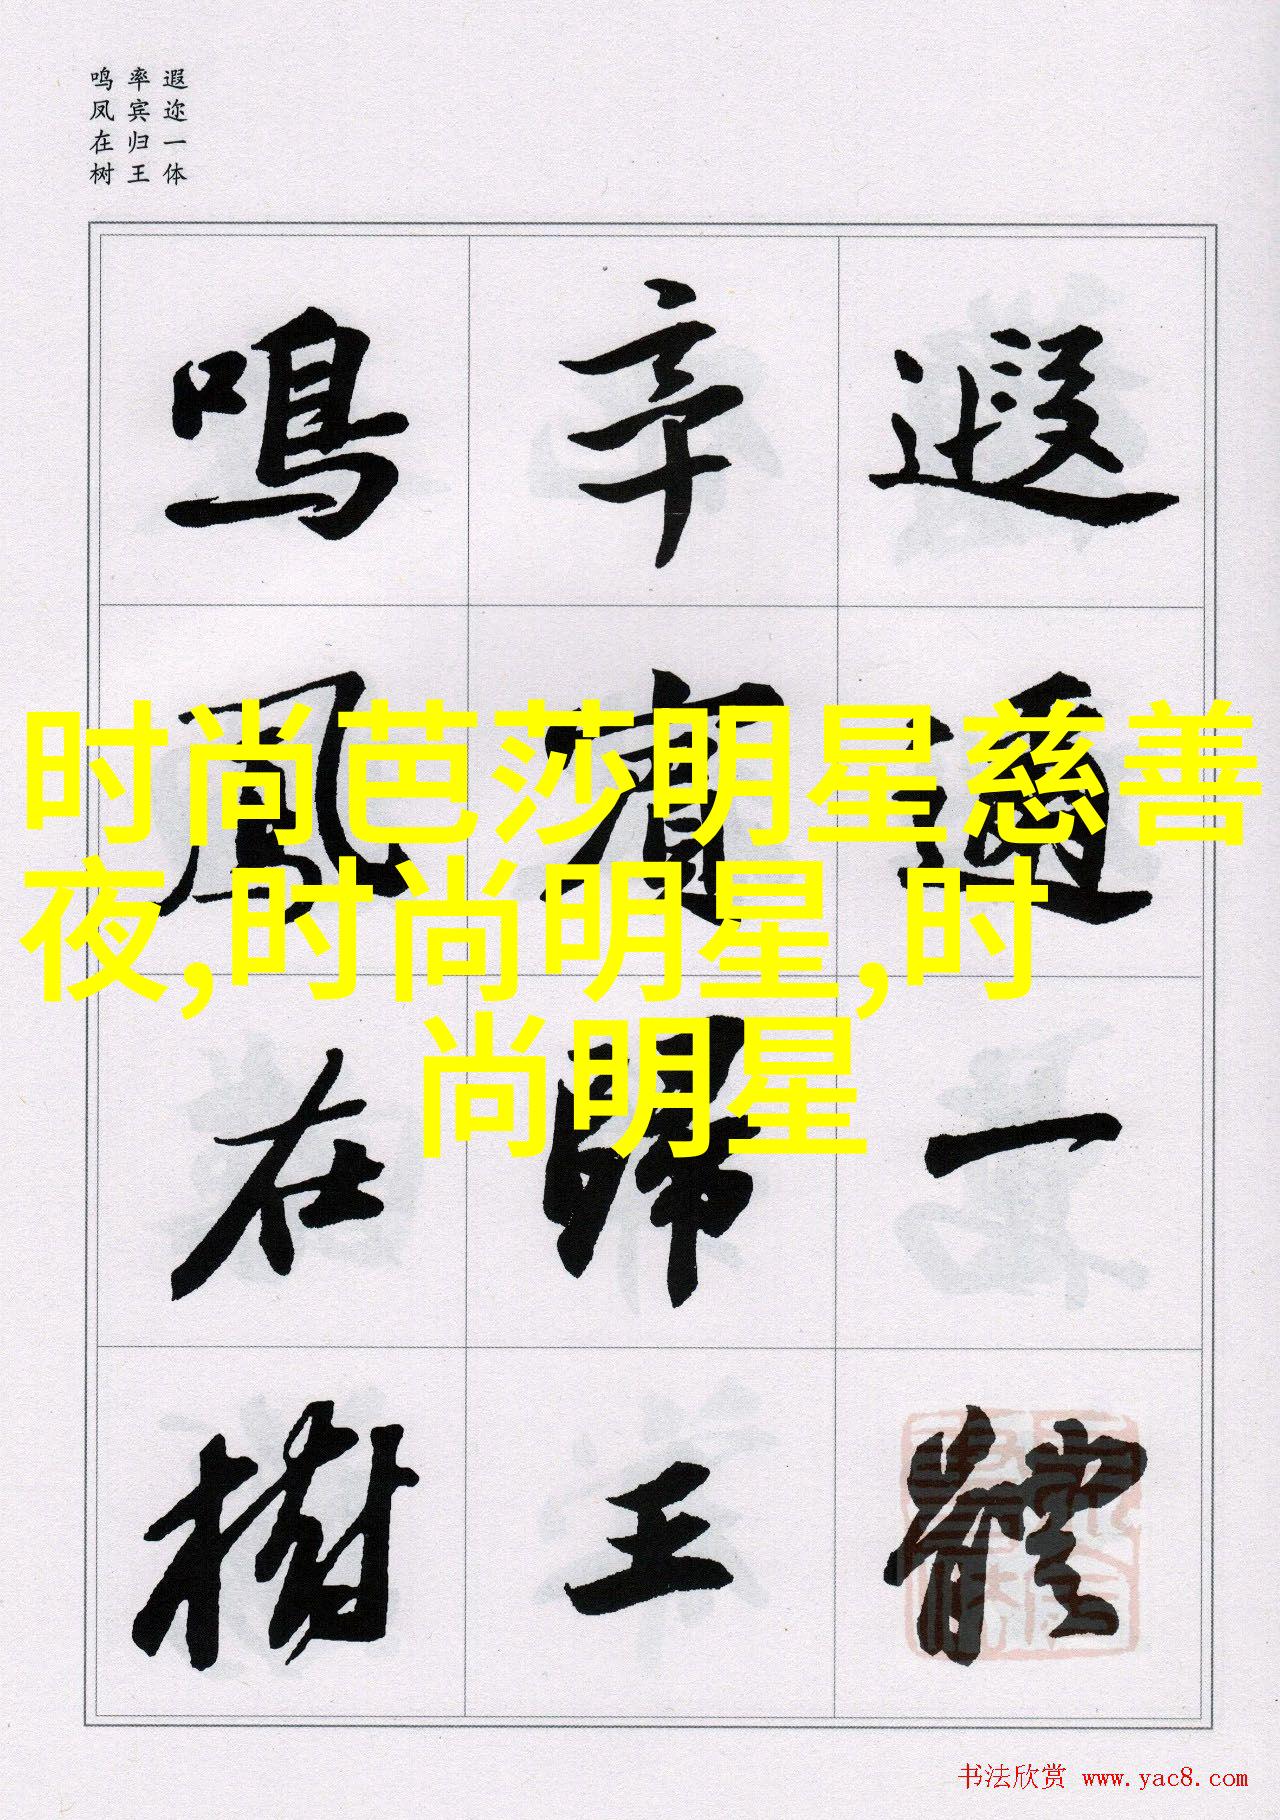 遐迩一体
率宾归王
鸣凤在树
遐邇一體
率賓歸王
鳴鳳在樹
时尚芭莎明星慈善
夜,时尚明星,时
尚明星
书法欣赏 www.yac8.com